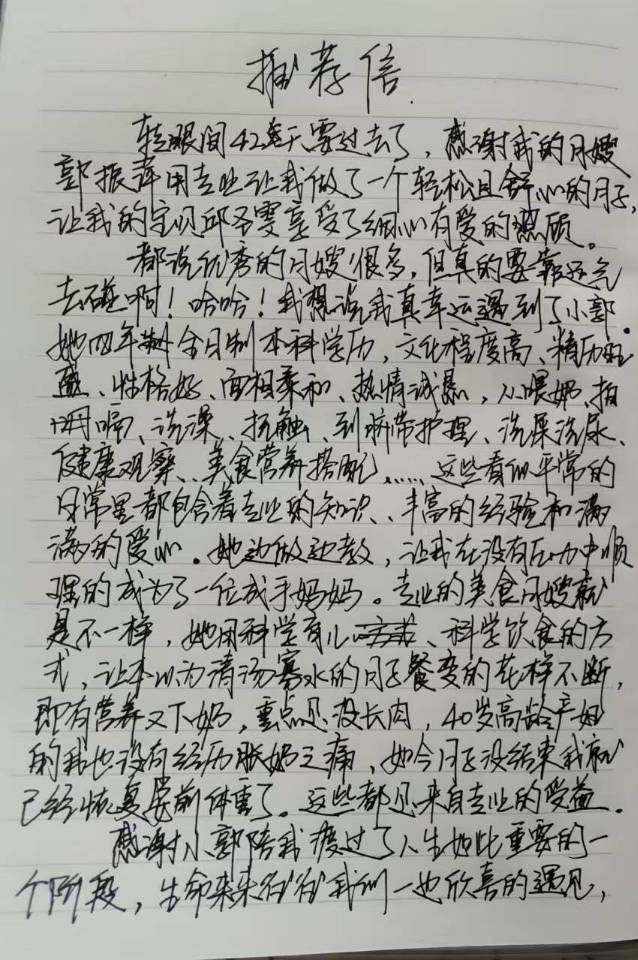 推荐信
转眼间42天要过去了，感谢我的月嫂
郭振萍用专业让我做了一个轻松且舒心的月子，
让我的宝贝邱圣雯享受了细心有爱的照顾。
都说优秀的月嫂很多，但真的要靠运气
去碰啊！哈哈！我想说我真幸运遇到了小郭。
她四年制全日制本科学历，文化程度高、精历旺
盛、性格好、面相柔和、热情诚恳，从喂奶、拍
嗝、洗澡、抚触、到脐带护理、洗屎洗尿、
健康观察、美食营养搭配……这些看似平常的
日常里都包含着专业的知识、丰富的经验和满
满的爱心。她边做边教，让我在没有压力中顺
理的成为了一位成手妈妈。专业的美食月嫂就
是不一样，她用科学育儿方式、科学饮食的方
式，让本以为清汤寡水的月子餐变的花样不断，
即有营养又下奶，重点还没长肉，40岁高龄产妇
的我也没有经历胀奶之痛，如今月子没结束我就
已经恢复产前体重了。这些都是来自专业的受益。
感谢小郭陪我度过了人生如此重要的一
个阶段，生命来来往往我们一也欣喜的遇见，